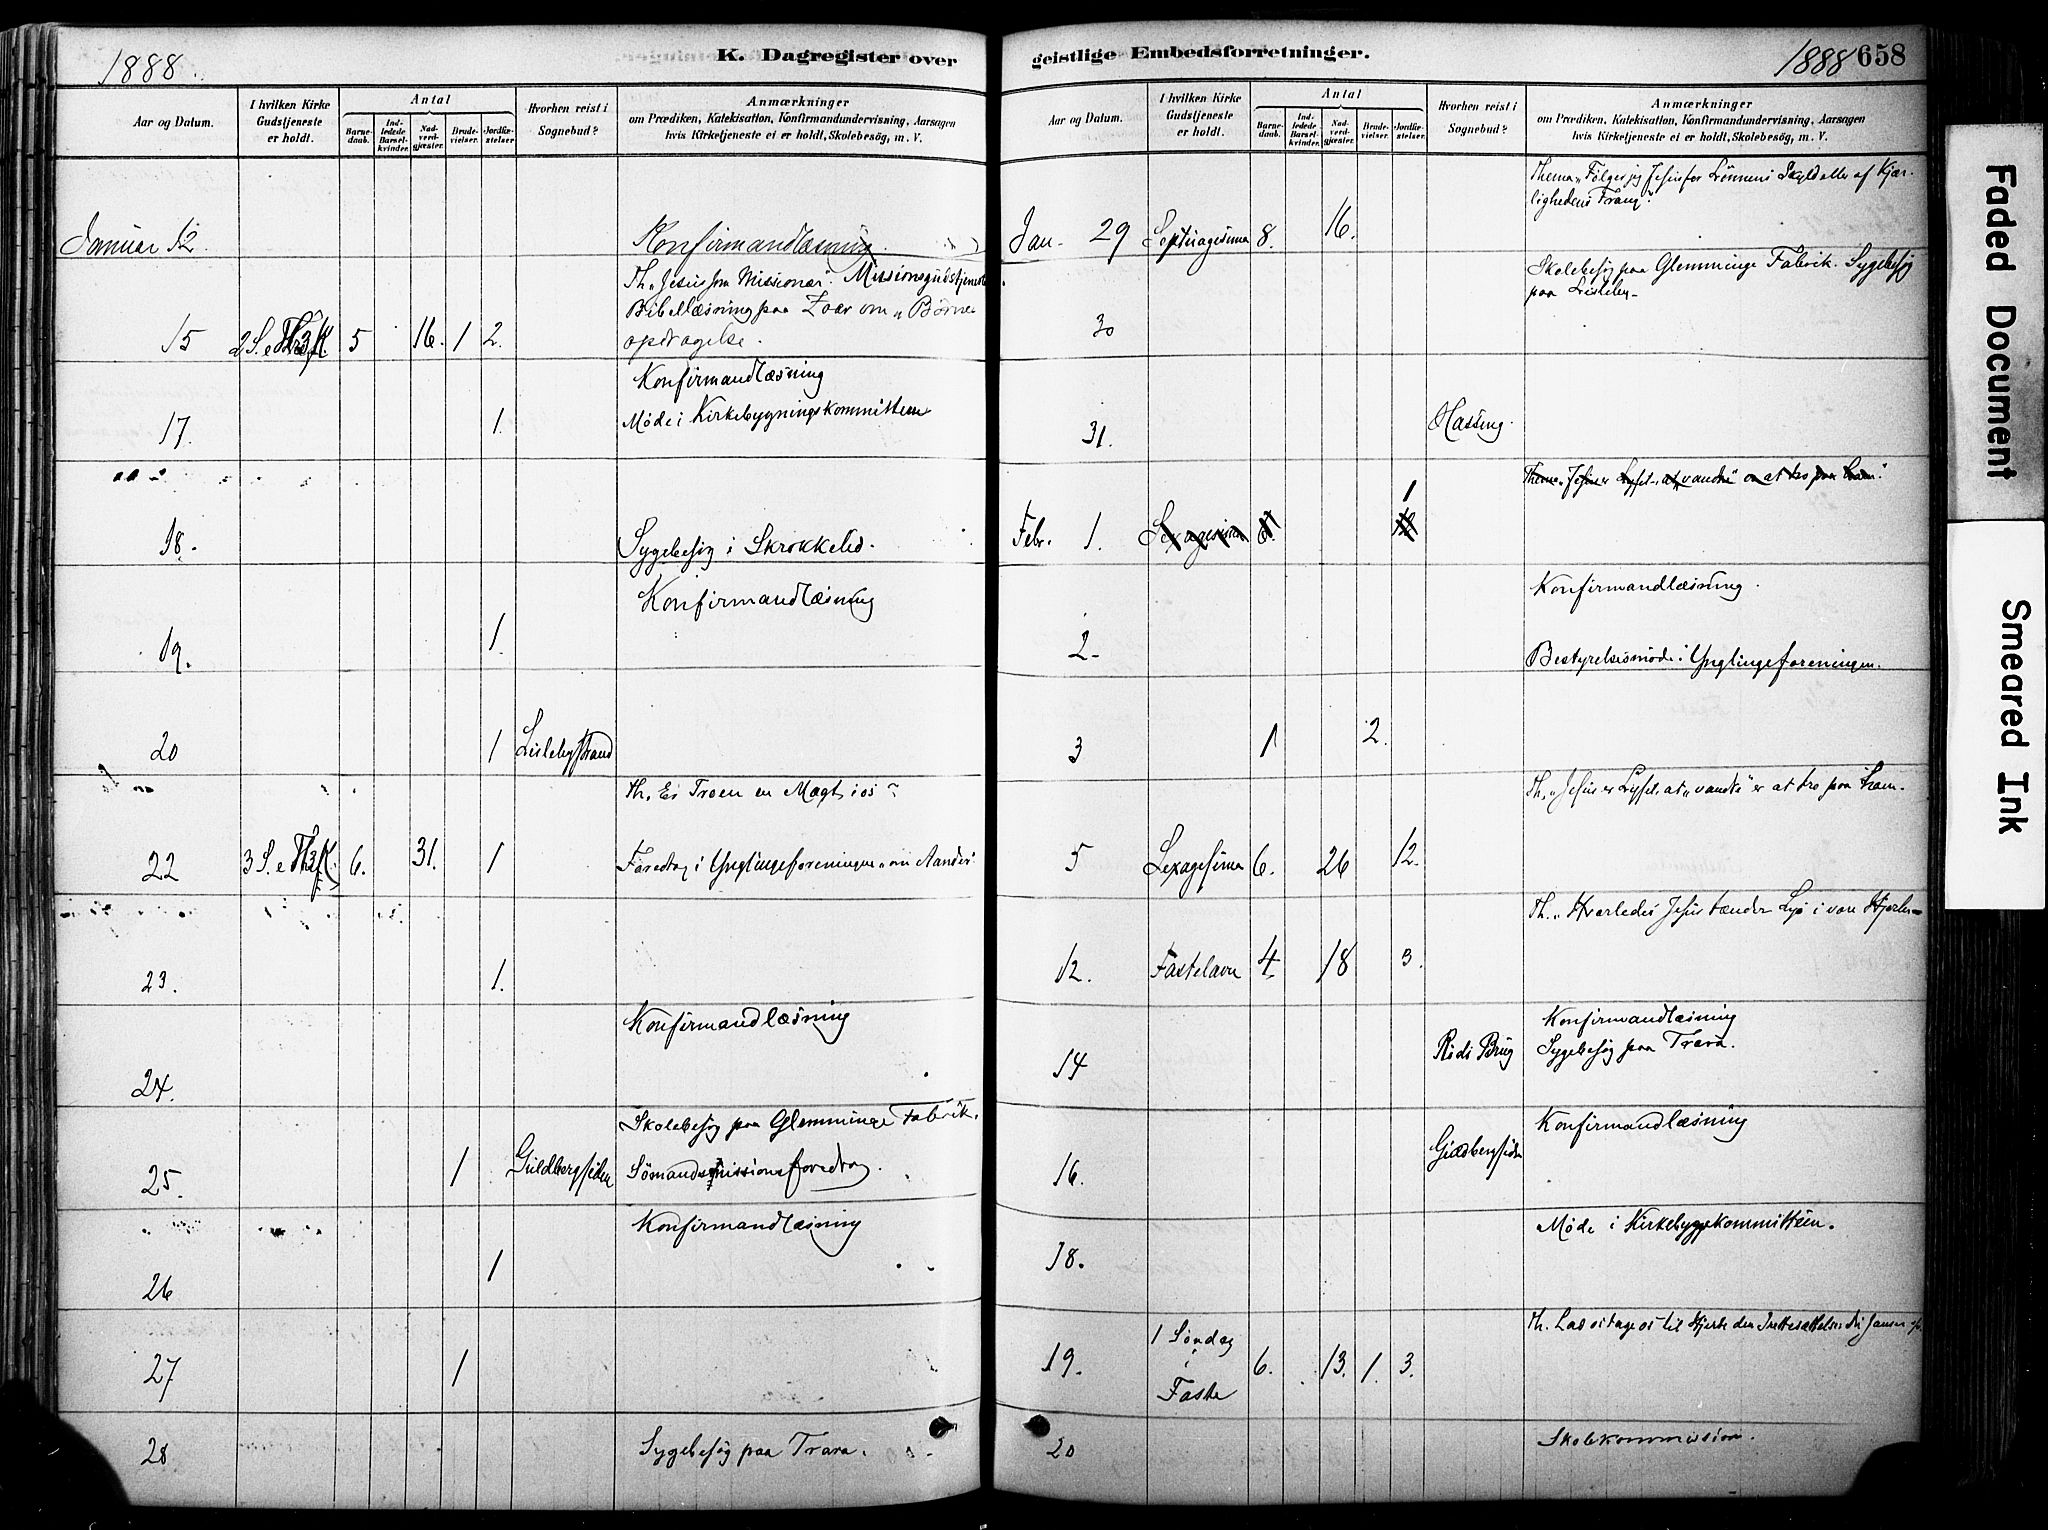 1888.
K. Dagregister over
Aar og Datum.
I hvilken Kirke Gudstjeneste er holdt.
Antal
Barnedaab.
Indledede Barselkvinder.
Nadverdgjæster.
Brudevielser.
Jordfæstelser
Hvorhen reist i Sognebud?
Anmærkninger
om Prædiken, Katekisation, Konfirmandundervisning, Aarsagen
hvis Kirketjeneste ei er holdt, Skolebesög, m. V.
Januar 12. Konfirmandlæsning
Th. "Jesus som Missionær". Missionsgudstjeneste.
Bibellæsning paa Zoar om "Børne
15 2 S. e 5 16. 1 2. opdragelse.
Konfirmandlæsning
17. 1. Møde i Kirkebygningskommitteen
18. Sygebesøg i Skrokkelid.
Konfirmandlæsning
19. 1.
20 1 Lislebystrand
Th. Er Troen en Magt i os?
22 3 S. e 6. 31. 1 Foredrag i Ynglingeforeningen
23. 1.
Konfirmandlæsning
24.
Skolebesøg paa Glemminge Fabrik.
25. 1 Guldbergsiden Sömandsmissionsforedrag.
Konfirmandlæsning
26 1
27 1
28 Sygebesøg paa Trara.
geistlige Embedsforretninger.
1888 658
Aar og Datum.
I hvilken Kirke Gudstjeneste er holdt.
Antal
Barnedaab.
Indledede Barselkvinder.
Nadverdgjæster.
Brudevielser.
Jordfæstelser.
Hvorhen reist i Sognebud?
Anmærkninger
om Prædiken, Katekisation, Konfirmandundervisning, Aarsagen
hvis Kirketjeneste ei er holdt, Skolebesög, m. V.
Thema "Følger jeg Jesus for Lønnens Skyld eller af Kjær-
lighedens Trang".
Jan. 29 Septuagesima 8. 16.
Skolebesøg paa Glemminge Fabrik. Sygebesøg
paa Lisleby
30
31. Hassing.
1
Febr. 1. Sexagesima
Konfirmandlæsning.
2. Bestyrelsesmöde i Ynglingeforeningen.
3 1 2.
Th. "Jesus er Lyset, at "vandre" er at tro paa ham.
5 Sexagesima 6. 26 12.
Th. "Hvorledes Jesus tænder Lys i vore Hjerter
12. Fastelavn 4. 18 3.
Konfirmandlæsning
14 Röds Brug Sygebesøg paa Trara.
Konfirmandlæsning
16. Guldbergsiden
18. Møde i Kirkebyggekommitteen.
Th. Lad os tage os til Hjerte den
19. 1 Søndag i Faste 6. 13. 1. 3.
20 Skolekommission.
Faded Document
Smeared Ink